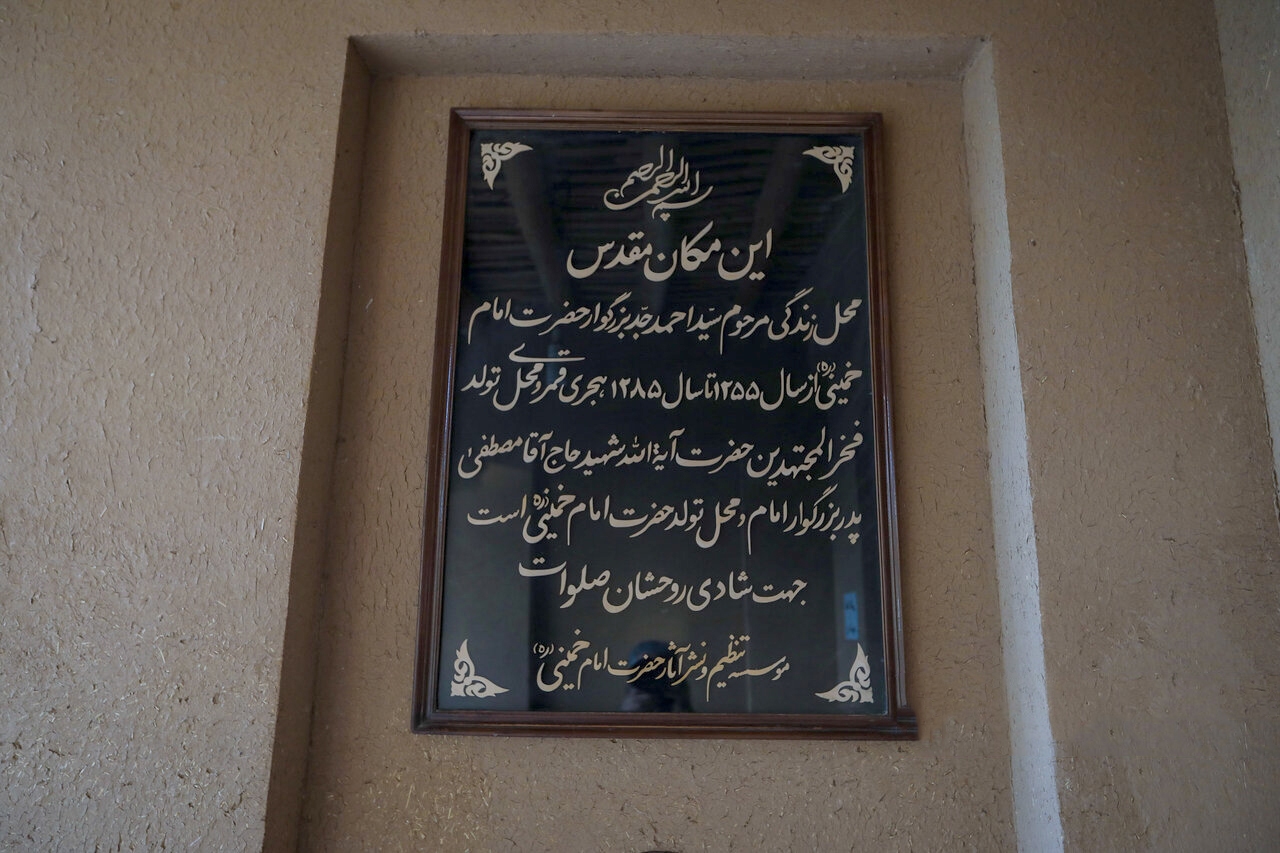 بسم الله الرحمن الرحیم
این مکان مقدس
محل زندگی مرحوم سیّد احمد جدّ بزرگوار حضرت امام
خمینی(ره) از سال ۱۲۵۵ تا سال ۱۲۸۵ هجری قمری و محل تولد
فخر المجتهدین حضرت آیة الله شهید حاج آقا مصطفیٰ
پدر بزرگوار امام و محل تولد حضرت امام خمینی(ره) است
جهت شادی روحشان صلوات
موسسه تنظیم و نشر آثار حضرت امام خمینی(ره)